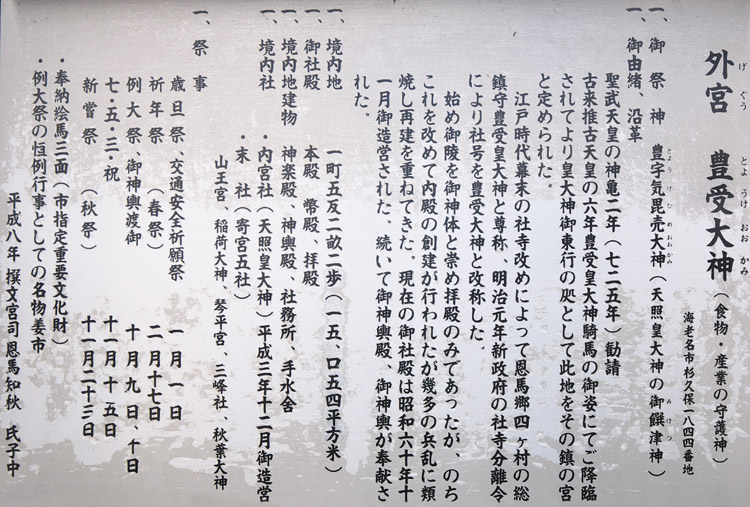 外宮 豊受大神(食物・産業の守護神)
げぐう とようけおおかみ
海老名市杉久保一八四四番地
一、御祭神 豊宇気毘売大神(天照皇大神の御饌津神)
とようけびめおおかみ みけつ
一、御由緒、沿革
聖武天皇の神亀二年(七二五年)勧請
古来推古天皇の六年豊受皇大神騎馬の御姿にてご降臨
されてより皇大神御東行の処として此地をその鎮の宮
と定められた。
江戸時代幕末の社寺改めによって恩馬郷四ヶ村の総
鎮守豊受皇大神と尊称、明治元年新政府の社寺分離令
により社号を豊受大神と改称した。
始め御陵を御神体と崇め拝殿のみであったが、のち
これを改めて内殿の創建が行われたが幾多の兵乱に類
焼し再建を重ねてきた。現在の御社殿は昭和六十年十
一月御造営された。続いて御神輿殿、御神輿が奉献さ
れた。
一、境内地 一町五反二畝二歩(一五、口五四平方米)
一、御社殿 本殿、幣殿、拝殿
一、境内地建物 神楽殿、神輿殿、社務所、手水舎
一、境内社 ・内宮社(天照皇大神)平成三年十二月御造営
・末 社(寄宮五社)
山王宮、稲荷大神、琴平宮、三峰社、秋葉大神
一、祭 事
歳旦祭、交通安全祈願祭 一月一日
祈年祭(春祭) 二月十七日
例大祭、御神輿渡御 十月九日、十日
七・五・三・祝 十一月十五日
新嘗祭(秋祭) 十一月二十三日
・奉納絵馬三面(市指定重要文化財)
・例大祭の恒例行事としての名物姜市
平成八年 撰文宮司恩馬知秋 氏子中